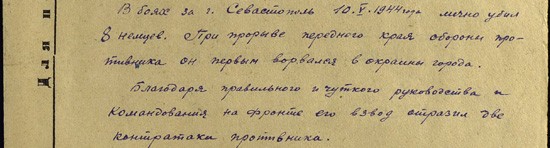 В боях за г. Севастополь 10.V.1944 года лично убил
8 немцев. При прорыве переднего края обороны про-
тивщика он первым ворвался в окраины города.
Благодаря правильного и чуткого руководства и
командования на фронте его взвод отразил две
контратаки противника.
Для п